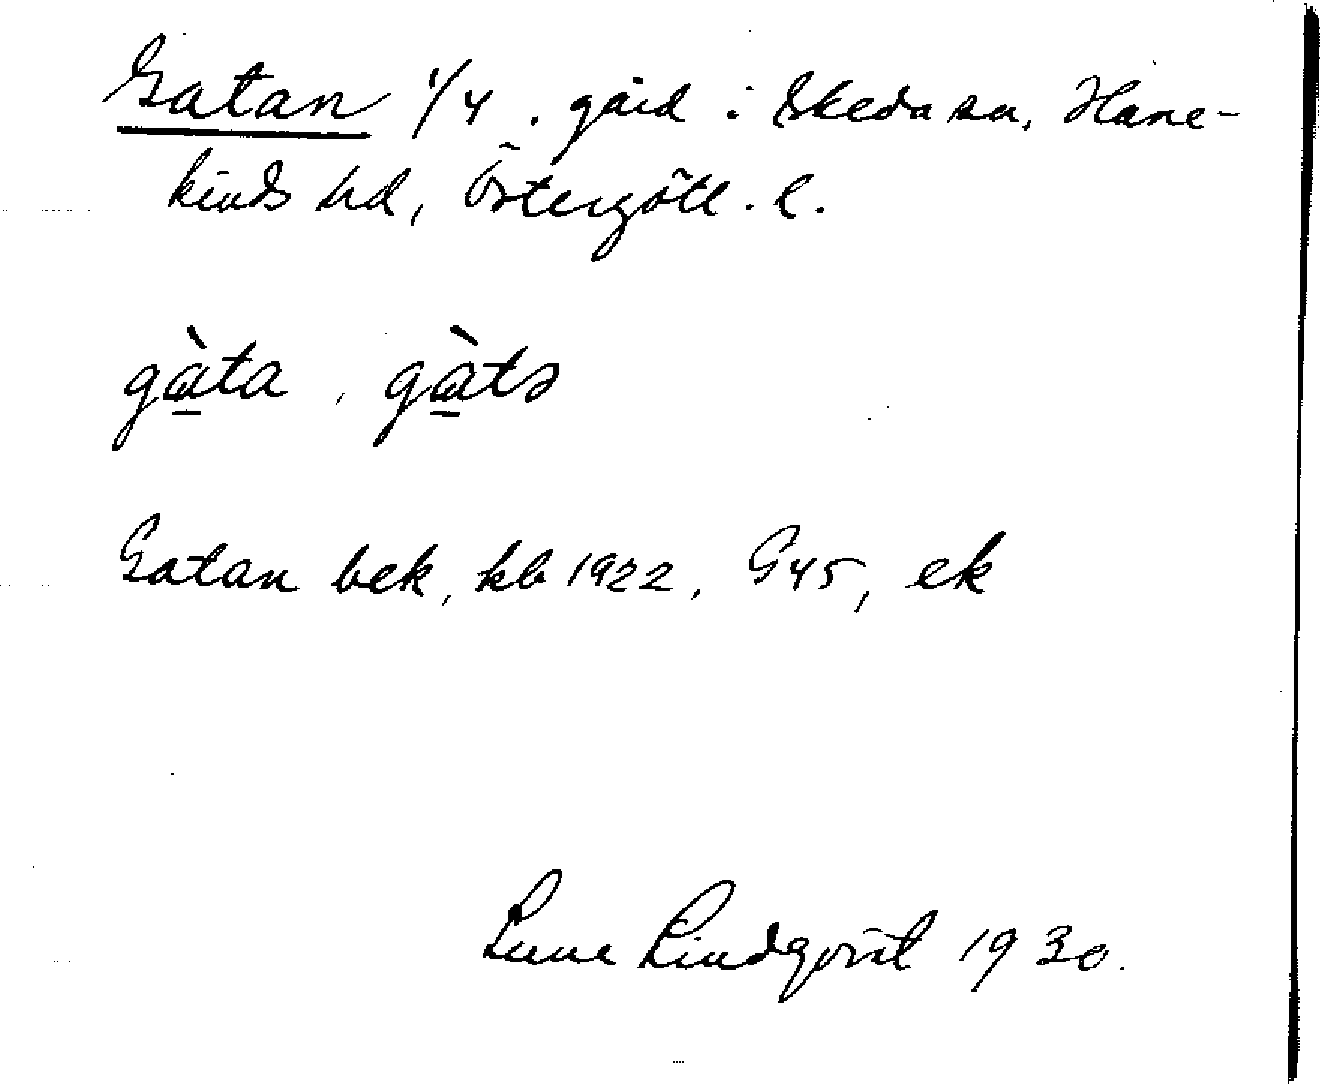 Gatan 1/4. gård i Skeda sn, Hane-
kinds hd, Östergötl. l.
gàta, gàtə
Gatan bek, kb 1922, G45, ek
Sune Lindqvist 1930.